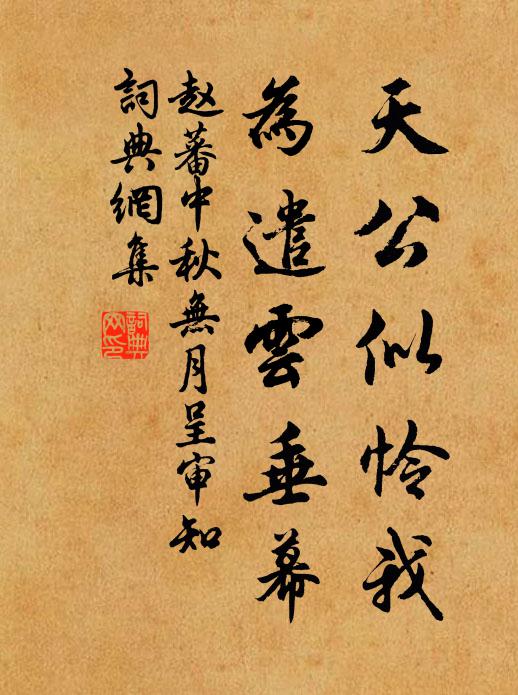 天公似怜我
為遣雲垂幕
赵蕃中秋無月呈审知
詞典網集
詞典
网印